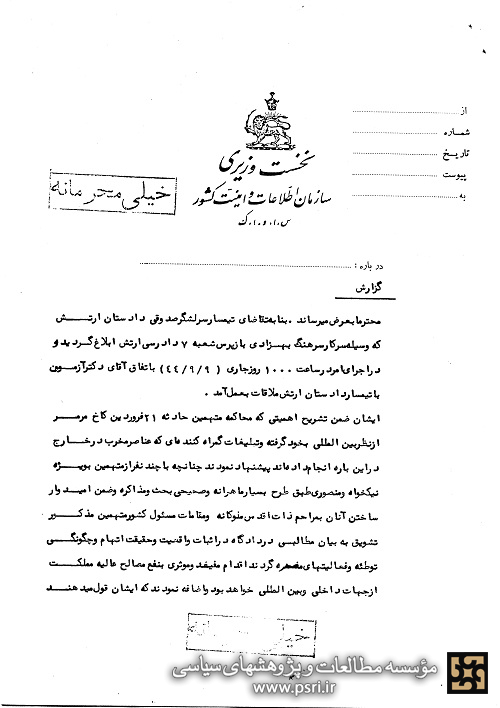 از
شماره
تاریخ
پیوست
به
نخست وزیری
سازمان اطلاعات و امنیت کشور
س.ا.و.ا.ک
خیلی محرمانه
درباره :
گزارش
محترما بعرض میرساند . بنا به تقاضای تیمسار سرلشگر صدوقی دادستان ارتش
که وسیله سرکار سرهنگ بهزادی بازپرس شعبه ۷ دادرسی ارتش ابلاغ گردید و
در اجرای امر در ساعت ۱۰۰۰ روز جاری (۴۴/۹/۹) باتفاق آقای دکتر آزمون
با تیمسار دادستان ارتش ملاقات بعمل آمد .
ایشان ضمن تشریح اهمیتی که محاکمه متهمین حادثه ۲۱ فروردین کاخ مرمر
از نظر بین المللی بخود گرفته و تبلیغات گمراه کننده ای که عناصر مخرب در خارج
در این باره انجام داده اند پیشنهاد نمودند چنانچه با چند نفر از متهمین بویژه
نیکخواه و منصوری طبق طرح بسیار ماهرانه و صحیحی بحث و مذاکره و ضمن امیدوار
ساختن آنان بمراحم ذات اقدس ملوکانه و مقامات مسئول کشور متهمین مذکور
تشویق به بیان مطالبی در دادگاه در اثبات واقعیت و حقیقت اتهام و چگونگی
توطئه و فعالیتهای مضره گردند اقدام مفید و موثری بنفع مصالح عالیه مملکت
از جهات داخلی و بین المللی خواهد بود و اضافه نمودند که ایشان قول میدهند
خیلی محرمانه
مؤسسه مطالعات و پژوهشهای سیاسی
www.psri.ir